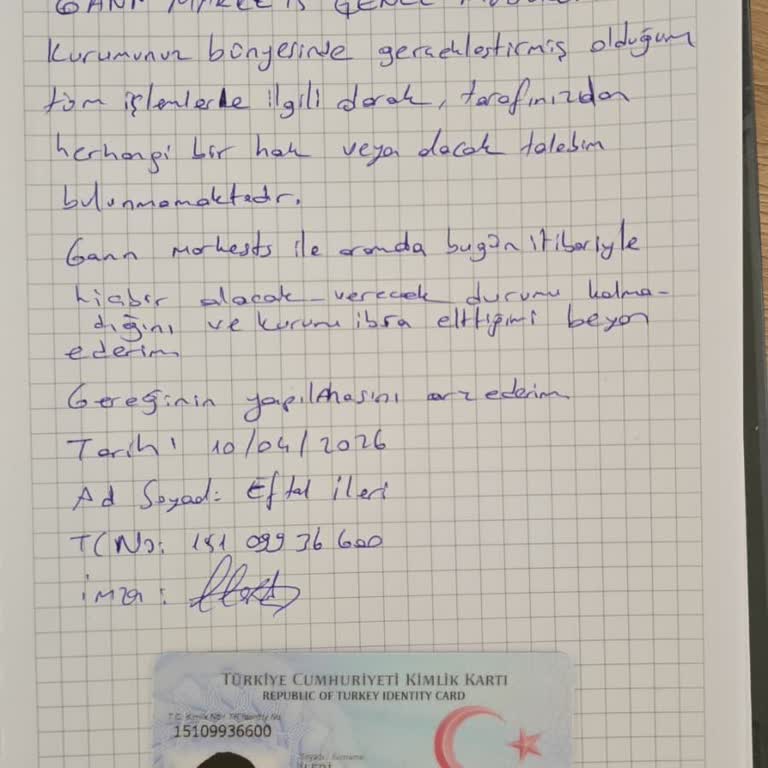 GANN MARKETS GENEL MÜDÜRLÜĞÜ
Kurumunuz bünyesinde gerçekleştirmiş olduğum
tüm işlemlerle ilgili olarak, tarafınızdan
herhangi bir hak veya alacak talebim
bulunmamaktadır.
Gann Markests ile aramda bugün itibariyle
hiçbir alacak-verecek durumu kalma-
dığını ve kurumu ibra elttiğimi beyan
ederim
Gereğinin yapılmasını arz ederim.
Tarih: 10/04/2026
Ad Soyad: Eftal ileri
TC No: 151 099 36 600
imza:
TÜRKİYE CUMHURİYETİ KİMLİK KARTI
REPUBLIC OF TURKEY IDENTITY CARD
T.C. Kimlik No / TR Identity No
15109936600
Soyadı / Surname
İLERİ